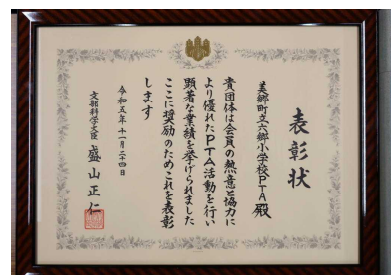 表彰状
美郷町立六郷小学校PTA殿
貴団体は会員の熱意と協力に
より優れたPTA活動を行い
顕著な業績を挙げられました
ここに奨励のためこれを表彰
します
令和五年十一月二十四日
文部科学大臣 盛山正仁